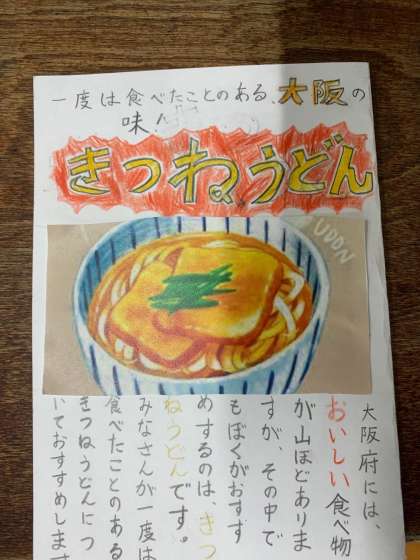 一度は食べたことのある、大阪の
味!
きつねうどん
UDON
大阪府には、
おいしい食べ物
が山ほどありま
すが、その中で
もぼくがおすす
めするのは、きつ
ねうどんです。
みなさんが一度は
食べたことのある
きつねうどんにつ
いておすすめします